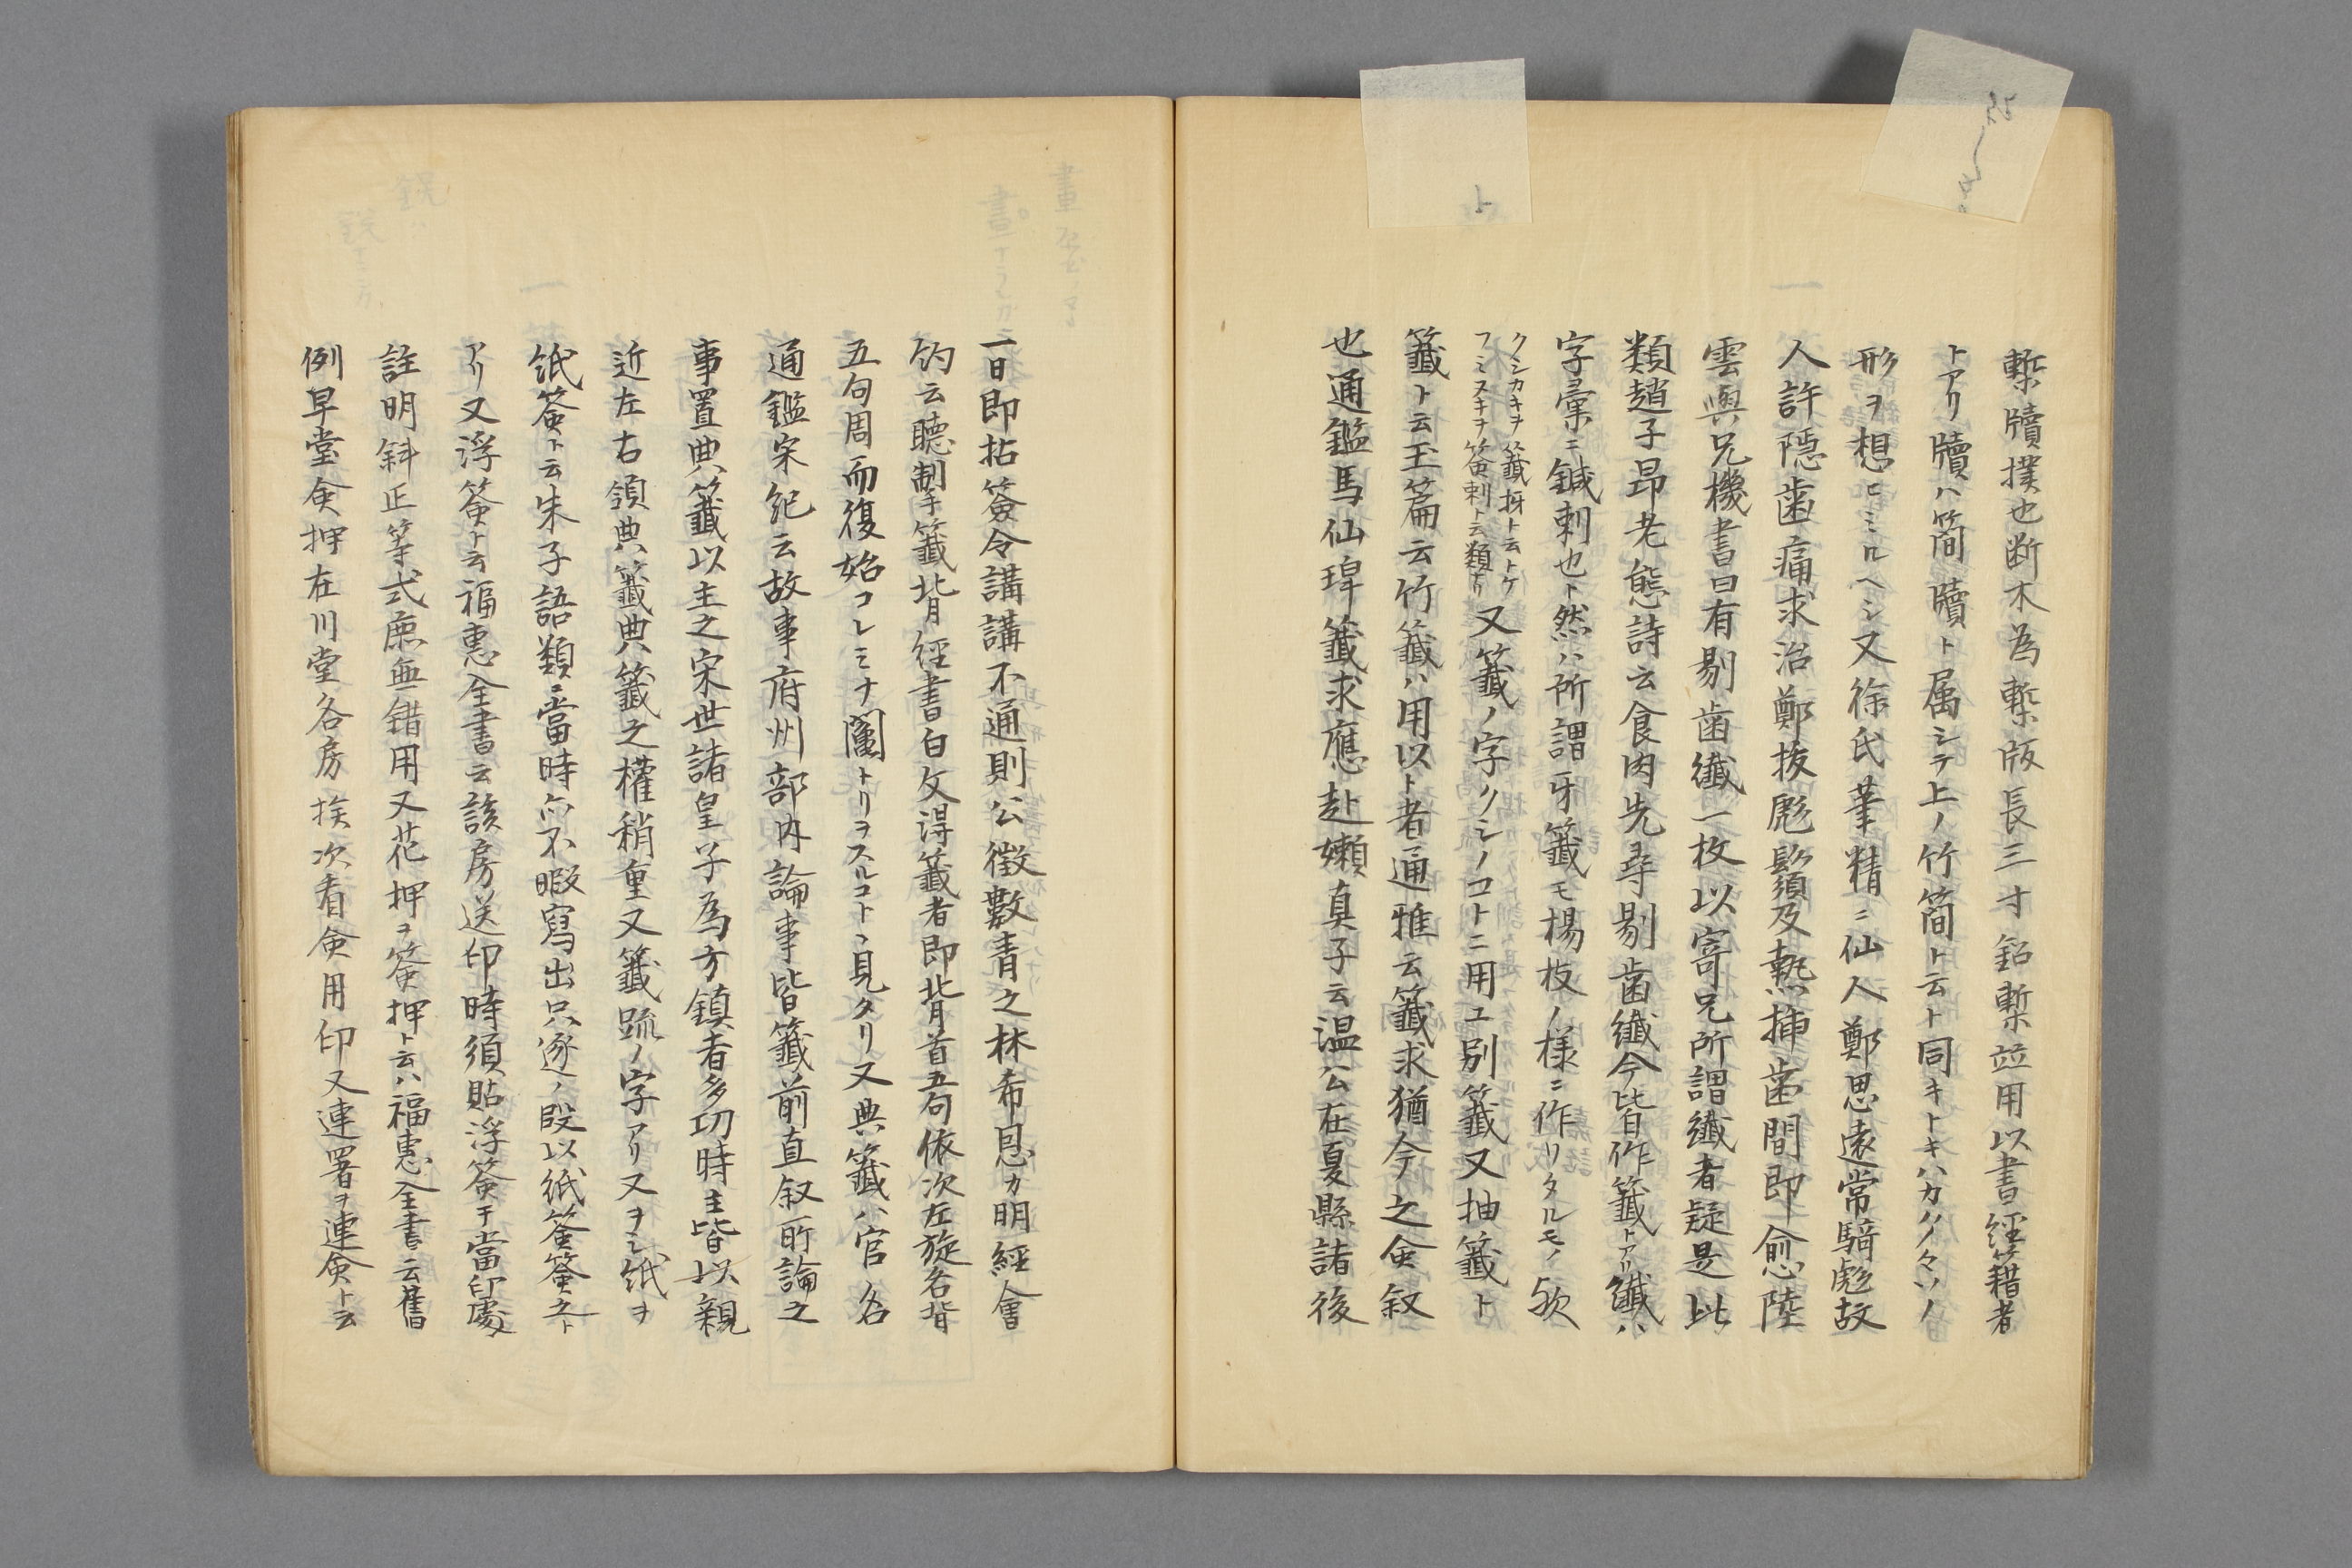 槧牘撲也断木為槧版長三寸鉛槧並用以書経籍者
トアリ牘ハ簡牘ト属シテ上ノ竹簡ト云ト同キトキハカクノ々ツノ
形ヲ想ヒミルヘシ又徐氏筆精ニ仙人鄭思遠常騎彪故
人許隠歯痛求治鄭抜彪鬚及熱挿歯間即愈陸
雲與兄機書曰有剔歯纖一枚以寄兄所謂纖者疑是此
類趙子昂老態詩云食肉先尋剔歯纖今皆作籤トアリ纖ハ
字彙ニ鍼刺也ト然ハ所謂牙籤モ楊枝ノ様ニ作リタルモノ欤
クシカキヲ籤拐ト云トケ
フミヌキヲ簽刺ト云類ナリ
又籤ノ字クシノコトニ用ユ別籤又抽籤ト
籤ト云玉篇云竹籤ハ用以ト者通雅云籤求猶今之僉叙
也通鑑馬仙琕籤求應赴嬾真子云温公在夏縣諸後
一日即拈簽令講講不通則公徴數青之林希恩カ明經會
約云聽制手籤背経書白文得籤者即背首五句依次左旋各背
五句周而復始コレミナ䦰トリヲスルコトヽ見タリ又典籤ハ官名
通鑑宋紀云故事府州部内論事皆籤前直叙所論之
事置典籤以主之宋世諸皇子為方鎮者多切時主皆以親
近左右領典籤典籤之權稍重又籤䟽ノ字アリ又ヲシ紙ヲ
紙簽ト云朱子語類ニ當時亦不暇寫出只逐ノ段以紙簽簽之ト
アリ又浮簽ト云福惠全書云該房送印時須貼浮簽于當印處
註明斜正等式庶無錯用又花押ヲ簽押ト云ハ福惠全書云舊
例早堂僉押在川堂各房挨次看僉用印又連署ヲ連僉ト云